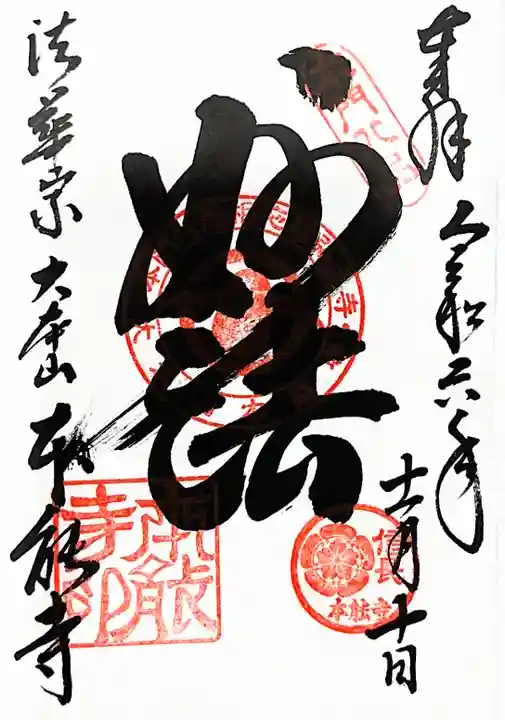 奉拝
令和六年
十一月十日
妙法
法華宗 大本山 本能寺
信長
本能寺
本能寺印